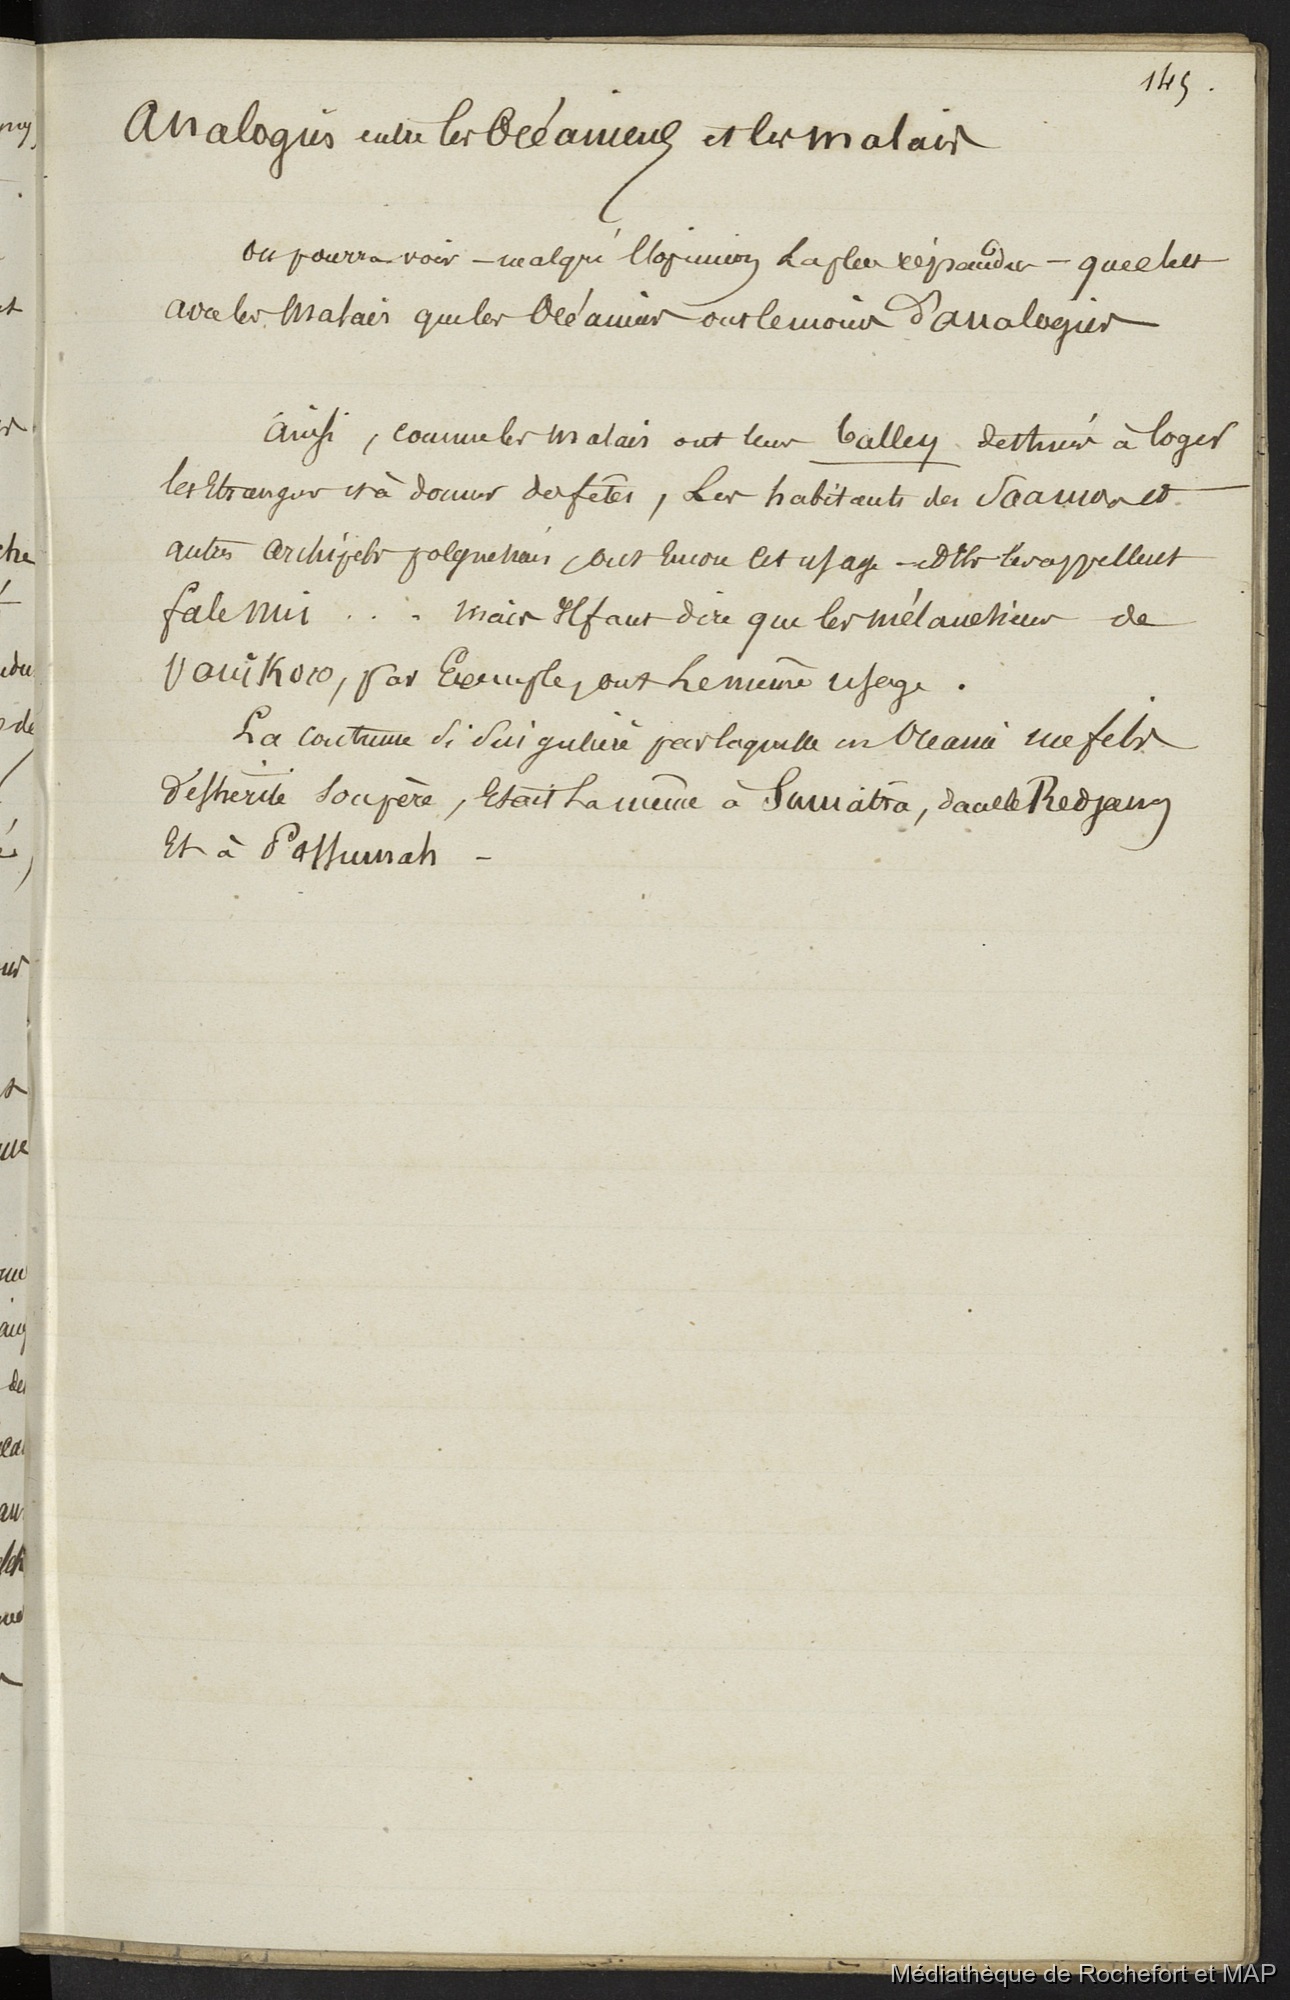 145.
Analogies entre les Océaniens et les malais
On pourra voir - malgré l'opinion la plus répandue - que c'est
avec les Malais que les Océaniens ont le moins d'analogies
Ainsi, comme les malais ont leur balley destinés à loger
les Etrangers et à donner des fêtes, Les habitants des Saamoa et
autres archipels polynésiens, ont Encore cet usage - et ils les appellent
fale . . . mais Il faut dire que les mélanésiens de
Vanikoro, par Exemple, ont le même usage.
La coutume si singulière par laquelle en Oceanie un fils
déshérite son père, Etait la même à Sumatra, dans le Redjang
Et à Passumah -
Médiathèque de Rochefort et MAP